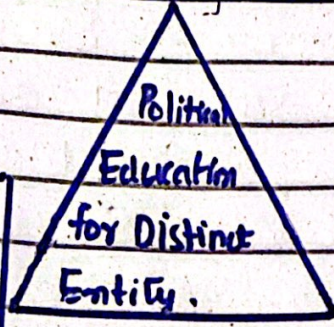 Political
Education
for Distinct
Entity.